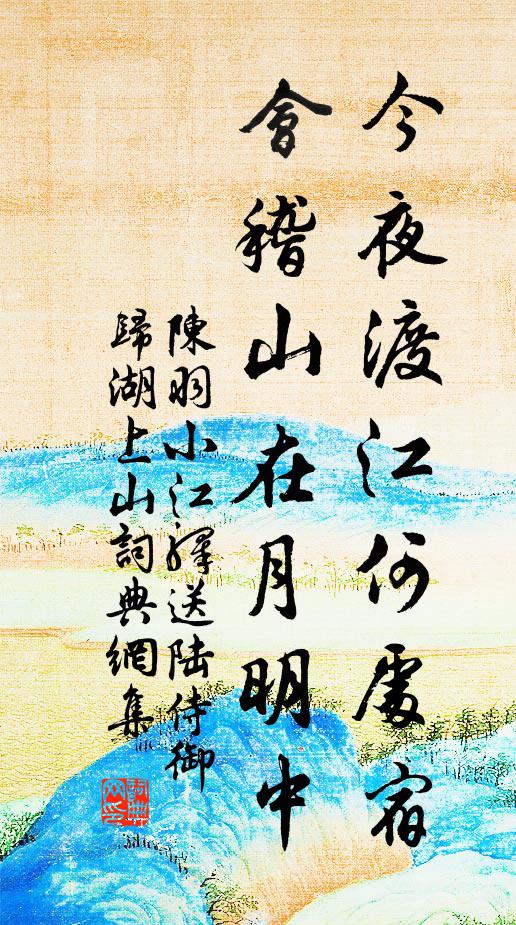 今夜渡江何處宿
會稽山在月明中
陳羽小江驛送陸侍御
歸湖上山詞典網集